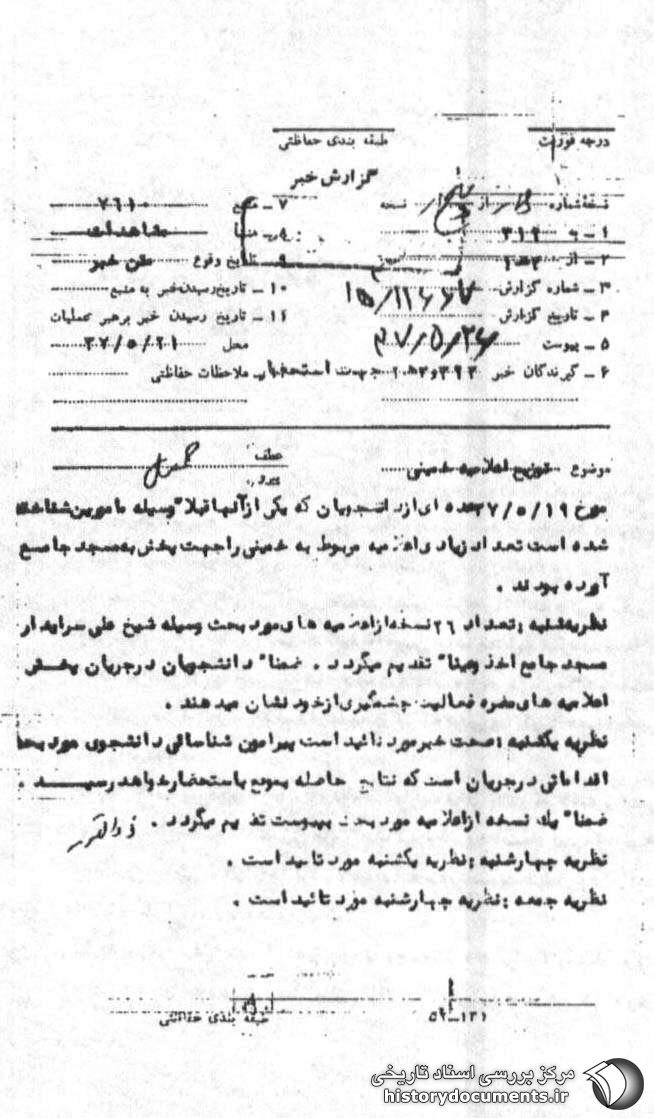 درجه فوریت
طبقه بندی حفاظتی
گزارش خبر
نسخه شماره از نسخه
۱ ـ به ۳۱۲
۲ ـ از
۳ ـ شماره گزارش
۴ ـ تاریخ گزارش ۳۷/۵/۲۶
۵ ـ پیوست
۶ ـ گیرندگان خبر جهت استحضار
۷ ـ منبع ۷۶۱۰
۸ ـ منشا مشاهدات
۹ ـ تاریخ وقوع متن خبر
۱۰ ـ تاریخ رسیدن خبر به منبع
۱۱ ـ تاریخ رسیدن خبر برهبر عملیات
محل ۳۷/۵/۲۱
ملاحظات حفاظتی
موضوع توزیع اعلامیه خمینی
عطف
پیرو
مورخ ۳۷/۵/۱۹ عده ای از دانشجویان که یکی از آنها قبلا" وسیله مامورین شناخته
شده است تعداد زیادی اعلامیه مربوط به خمینی را جهت پخش به مسجد جامع
آورده بودند .
نظریه شنبه : تعداد ۲۶ نسخه از اعلامیه های مورد بحث وسیله شیخ علی سرایدار
مسجد جامع اخذ و عینا" تقدیم میگردد . ضمنا" دانشجویان در جریان پخش
اعلامیه های مضره فعالیت چشمگیری از خود نشان میدهند .
نظریه یکشنبه : صحت خبر مورد تائید است پیرامون شناسائی دانشجوی مورد بحث
اقداماتی در جریان است که نتایج حاصله بموقع باستحضار خواهد رسید .
ضمنا" یک نسخه از اعلامیه مورد بحث بپیوست تقدیم میگردد .
نظریه چهارشنبه : نظریه یکشنبه مورد تائید است .
نظریه جمعه : نظریه چهارشنبه مورد تائید است .
طبقه بندی حفاظتی
۵۲ـ۱۳۱
مرکز بررسی اسناد تاریخی
historydocuments.ir